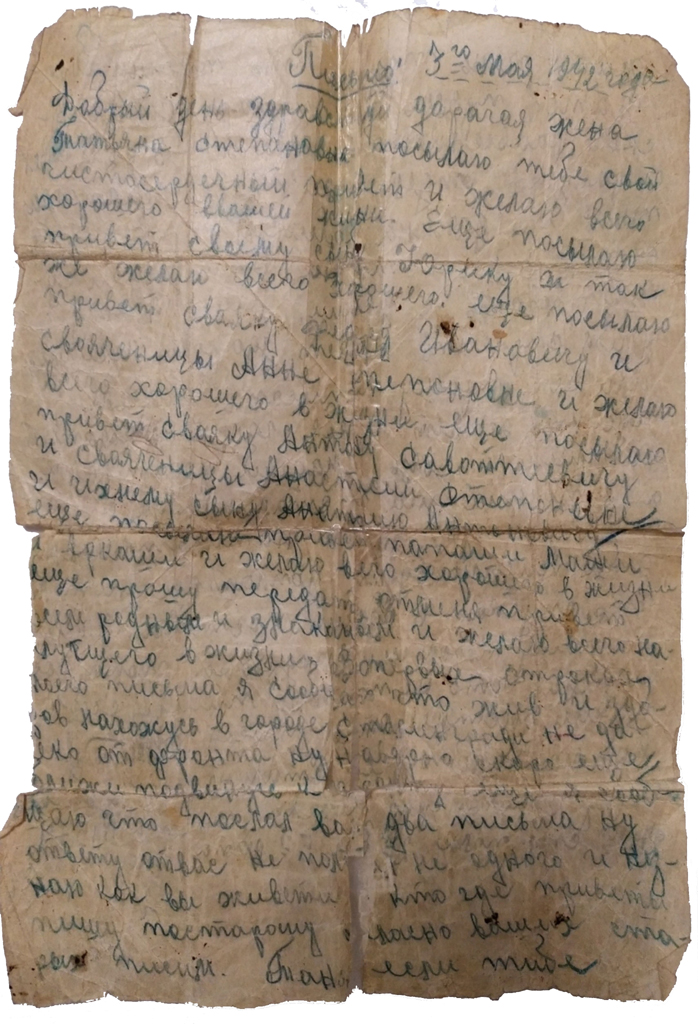 Письмо 3го мая 1942 года
Добрый день здравствуй дарагая жена
Татьяна Степановна посылаю тебе свой
чистосердечный привет и желаю всего
хорошего ввашей жизни. Еще посылаю
привет своему сыну Юрику и так
же желаю всего хорошего. еще посылаю
привет сваяку Ивановичу и
сваяченицы Анне Степоновне и желаю
всего хорошего в жизни еще посылаю
привет сваяку Антону Савоттиевичу
и сваяченицы Анастасии Степоновне
и ихнему сыну Анатолию Антоновичу
еще посылаю привет папаши Маши
и желаю всего хорошего в жизни
еще прошу передать отменя привет
всем родным и знакомым и желаю всего на
илутщего в жизни. Вопервых строках
моего письма я сообщаю что жив и здо-
ров нахожусь в городе Сталингради не да-
леко от фронта ну наверно скоро еще
ближи подвинусь и еще я сооб-
щаю что послал вам два письма ну
ответу отвас не получил не одного и не-
наю как вы живети кто где приветы
пишу постарому согласно ваших ста-
рых писим. Таня если тибе